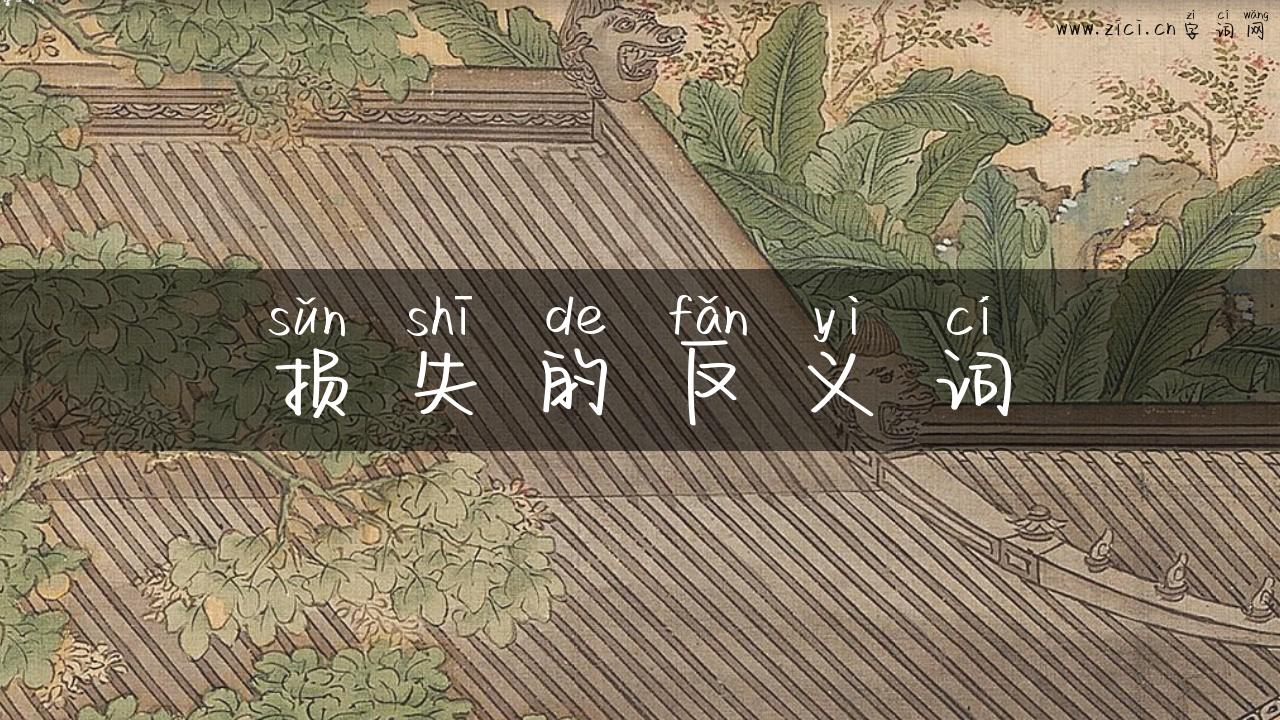 zì cí wǎng
www.zici.cn 字词网
sǔn shī de fǎn yì cí
损失的反义词